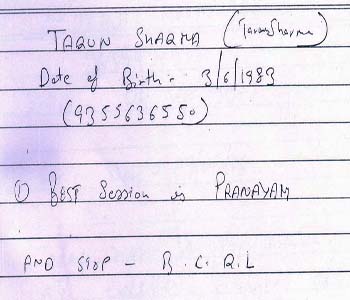 TARUN SHARMA (Tarun Sharma)
Date of Birth - 3/6/1983
(9355636550)
① BEST Session is PRANAYAM
AND STOP - B.C.R.L